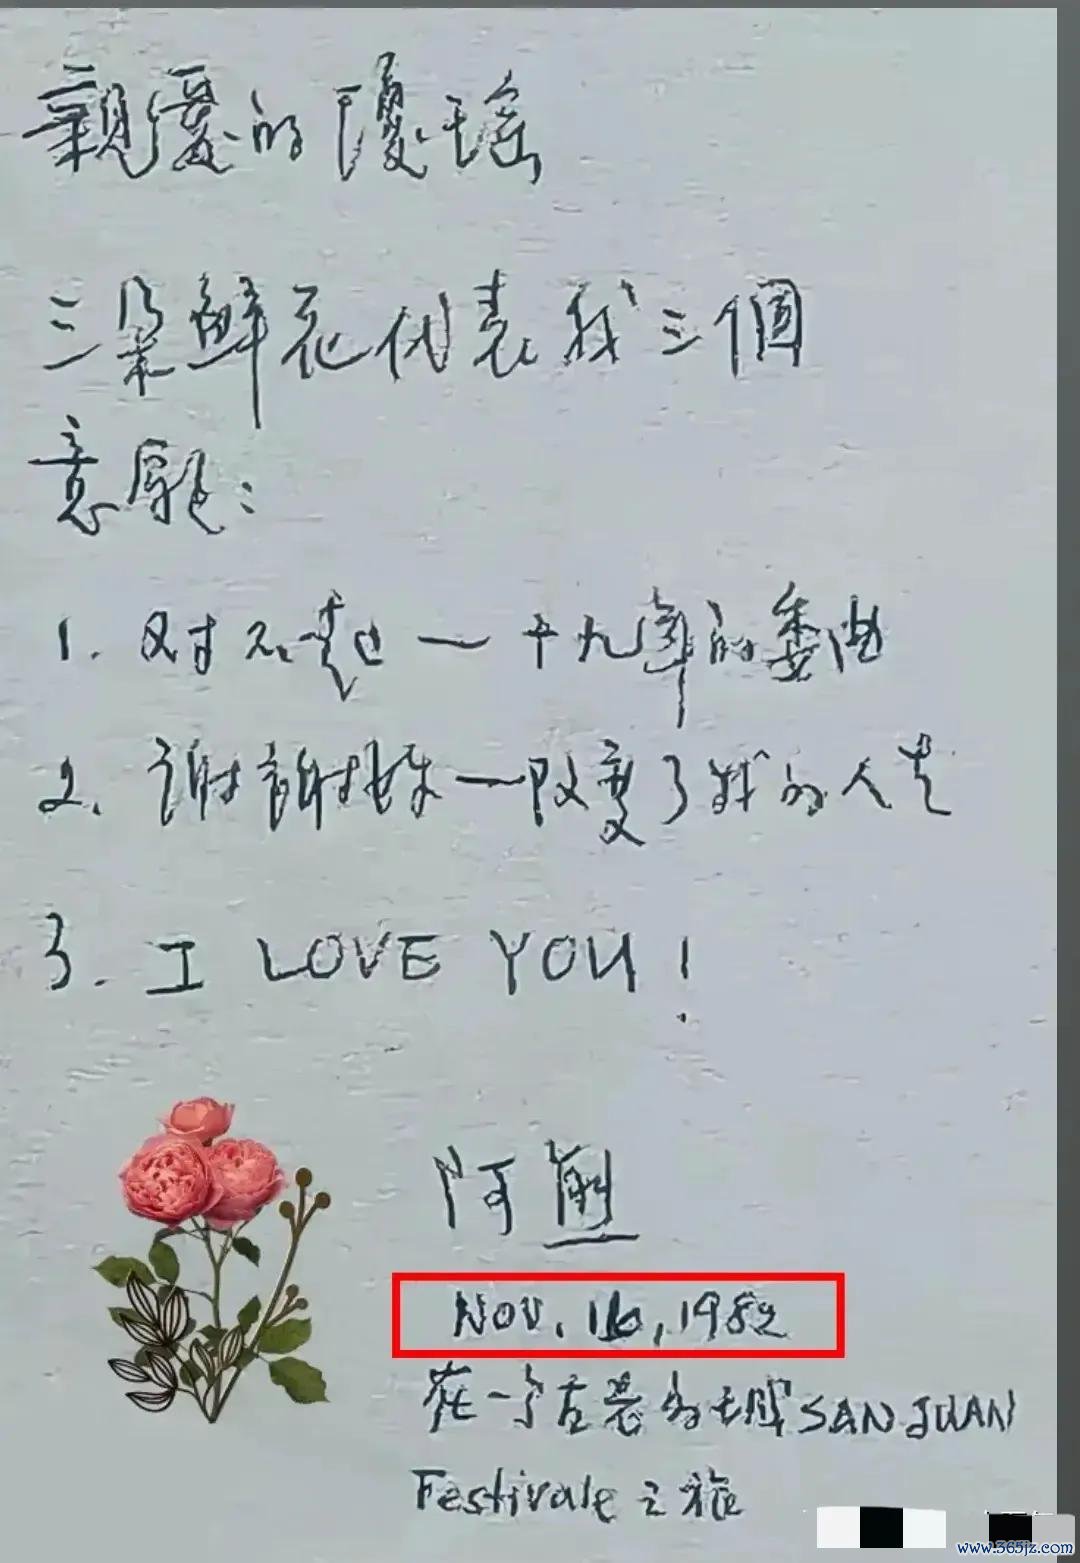 親愛的瓊瑤
三朵鮮花代表我三個
意願：
1. 对不起一十九年的委曲
2. 謝謝妳一改變了我的人生
3. I LOVE YOU!
阿
NOV. 16, 1982
在一个古老的城 SAN JUAN
Festivale 之旅
www.365jz.com